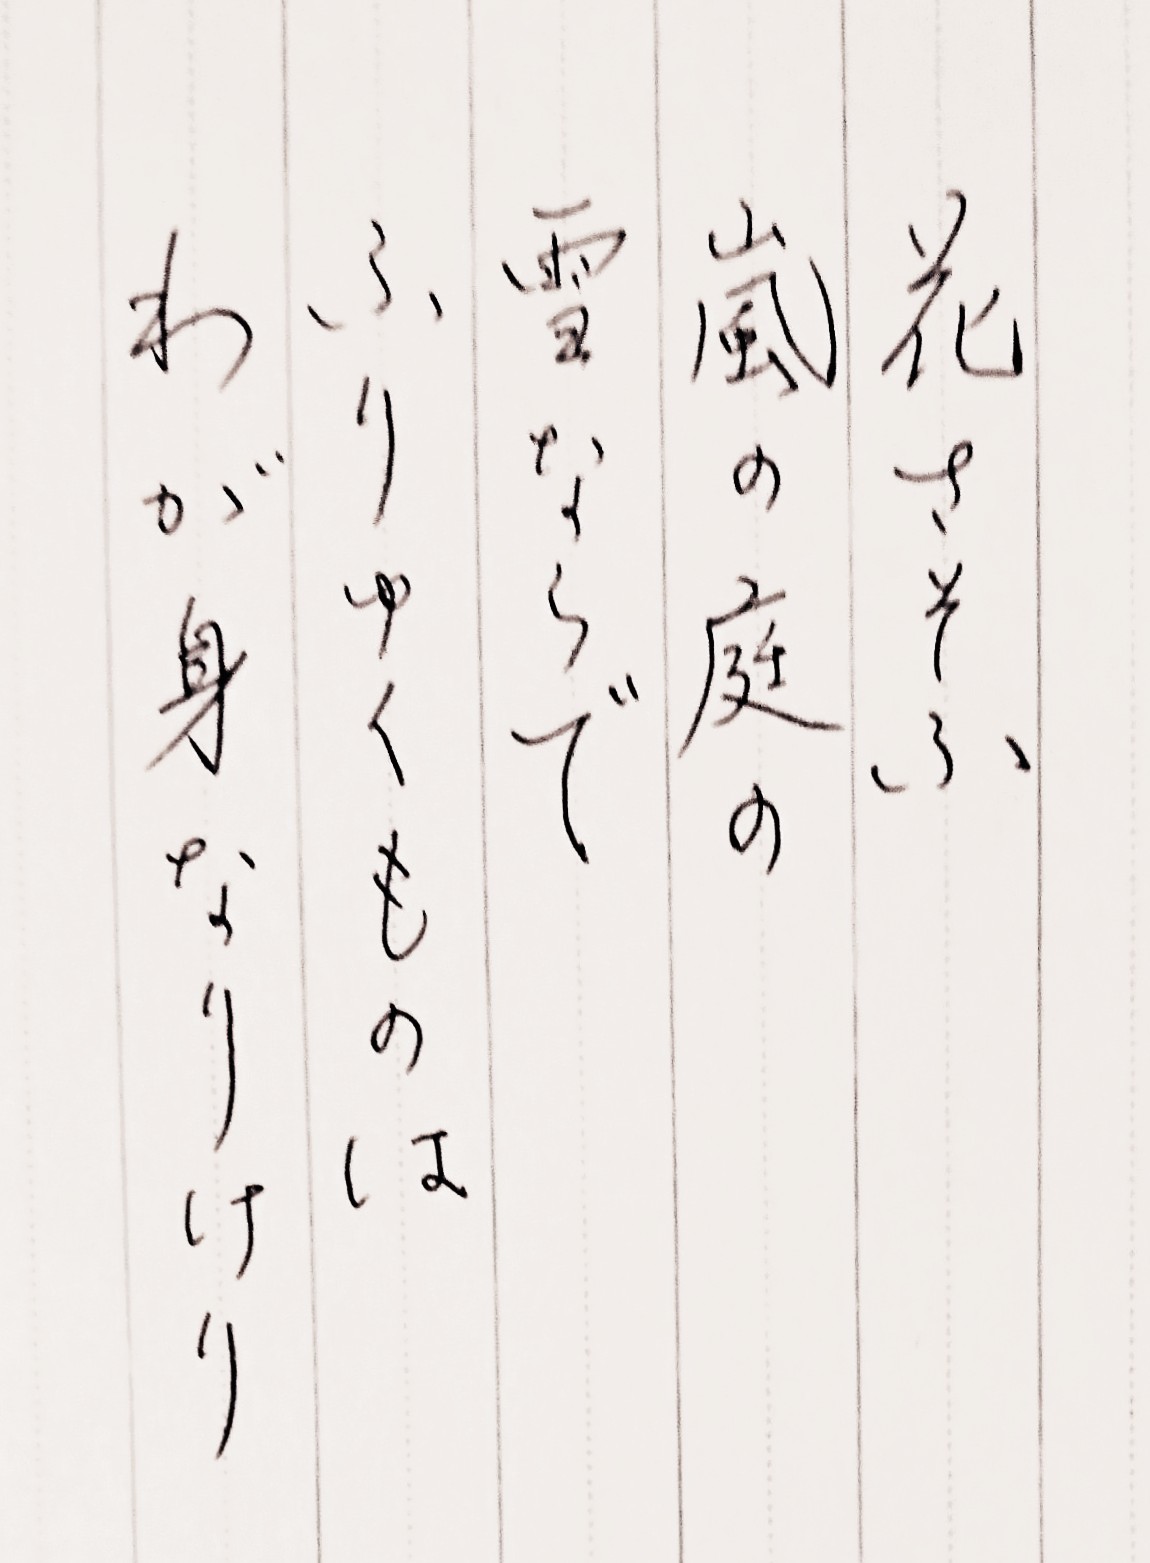 花さそふ
嵐の庭の
雪ならで
ふりゆくものは
わが身なりけり